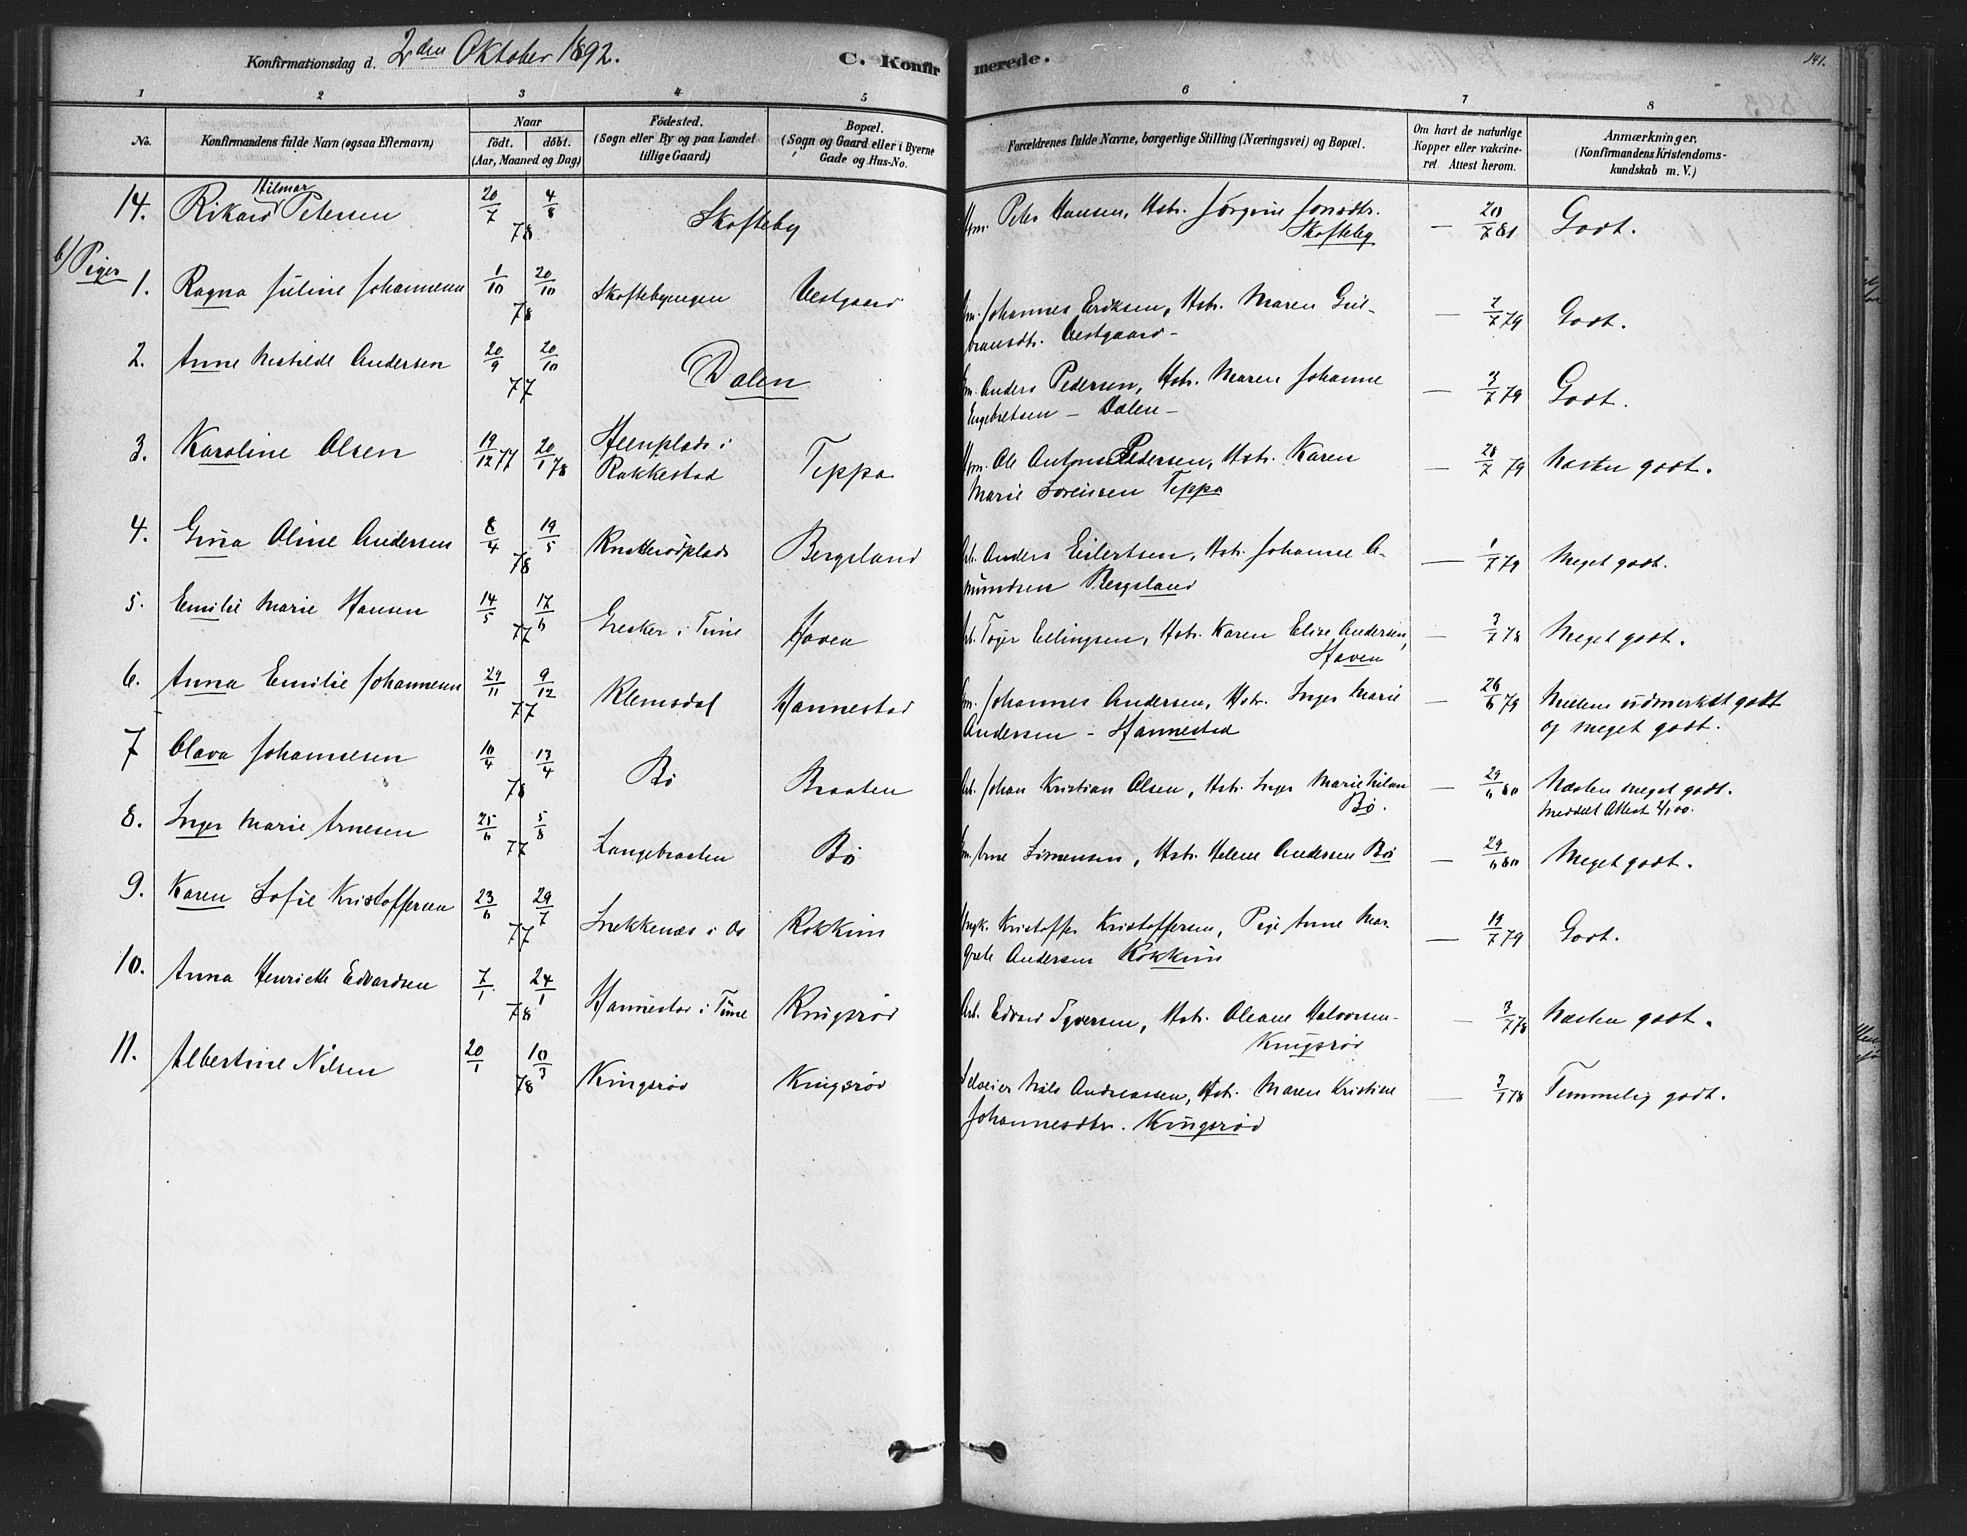 Konfirmationsdag d. 2den Oktober 1892.
C. Konfir
merede.
141.
1 2 3 4 5 6 7 8
No.
Konfirmandens fulde Navn (ogsaa Efternavn)
Naar
født. døbt.
(Aar, Maaned og Dag)
Fødested.
(Sogn eller By og paa Landet
tillige Gaard)
Bopæl.
(Sogn og Gaard eller i Byerne
Gade og Hus-No.
Forældrenes fulde Navne, borgerlige Stilling (Næringsvei) og Bopæl.
Om havt de naturlige
Kopper eller vakcine-
ret. Attest herom.
Anmærkninger.
(Konfirmandens Kristendoms-
kundskab m. V.)
Hilmar
14. Rikard Petersen 20/7 4/8 78 Skofteby
Gm. Peter Hansen, Hstr. Jørgine Jonsdtr.
Skofteby — 20/7 81 Godt.
b/ Piger
1. Ragna Juline Johannesen 1/10 20/10 78 Skoftebyengen Vestgaard
Gm. Johannes Eriksen, Hstr. Maren Gul-
bransdtr. Vestgaard — 2/7 79 Godt.
2. Anne Matilde Andersen 20/9 20/10 77 Dalen
Gm. Anders Pedersen, Hstr. Maren Johanne
Engebretsen — Dalen — 3/7 79 Godt.
3. Karoline Olsen 19/12 77 20/1 78 Heenplads i
Rakkestad Teppa
Gm. Ole Antons Pedersen, Hstr. Karen
Marie Sørensen Teppa — 28/7 79 Næsten godt.
4. Gina Oline Andersen 8/4 19/5 78 Knatterødplads Bergsland
Arb. Anders Eilertsen, Hstr. Johanne A-
mundsen Bergsland — 1/7 79 Meget godt.
5. Emilie Marie Hansen 14/5 17/6 77 Gresker i Tune Haven
Arb. Tøger Ellingsen, Hstr. Karen Elise Andersen,
Haven — 3/7 78 Meget godt.
6. Anna Emilie Johannesen 29/11 9/12 77 Klemsdal Hannestad
Gm. Johannes Andersen, Hstr. Inger Marie
Andersen — Hannestad — 26/6 79 Mellem udmerket godt
og meget godt.
7 Olava Johannesen 10/4 13/4 78 Bø Braaten
Arb. Johan Kristian Olsen, Hstr. Inger Marie Nilsen
Bø. — 29/6 80 Næsten meget godt.
Meddelt Attest 4/1 00.
8. Inger Marie Arnesen 25/6 5/8 77 Langebraaten Bø
Gm. Arne Simensen, Hstr. Helene Andersen Bø — 29/6 80 Meget godt.
9. Karen Sofie Kristoffersen 23/6 29/7 77 Snekkenæs i Os Rokkim
Ungk. Kristoffer Kristoffersen, Pige Anne Mar-
grete Andersen Rokkim — 19/7 79 Godt.
10. Anna Henriette Edvardsen 7/1 24/1 78 Hannestad i Tune Kingsrød
Arb. Edvard Syversen, Hstr. Oleane Halvorsen —
Kingsrød — 3/7 78 Næsten godt.
11. Albertine Nilsen 20/1 10/3 78 Kingsrød Kingsrød
Selveier Nils Andreassen, Hstr. Maren Kristine
Johannesdtr. Kingsrød — 3/7 78 Temmelig godt.